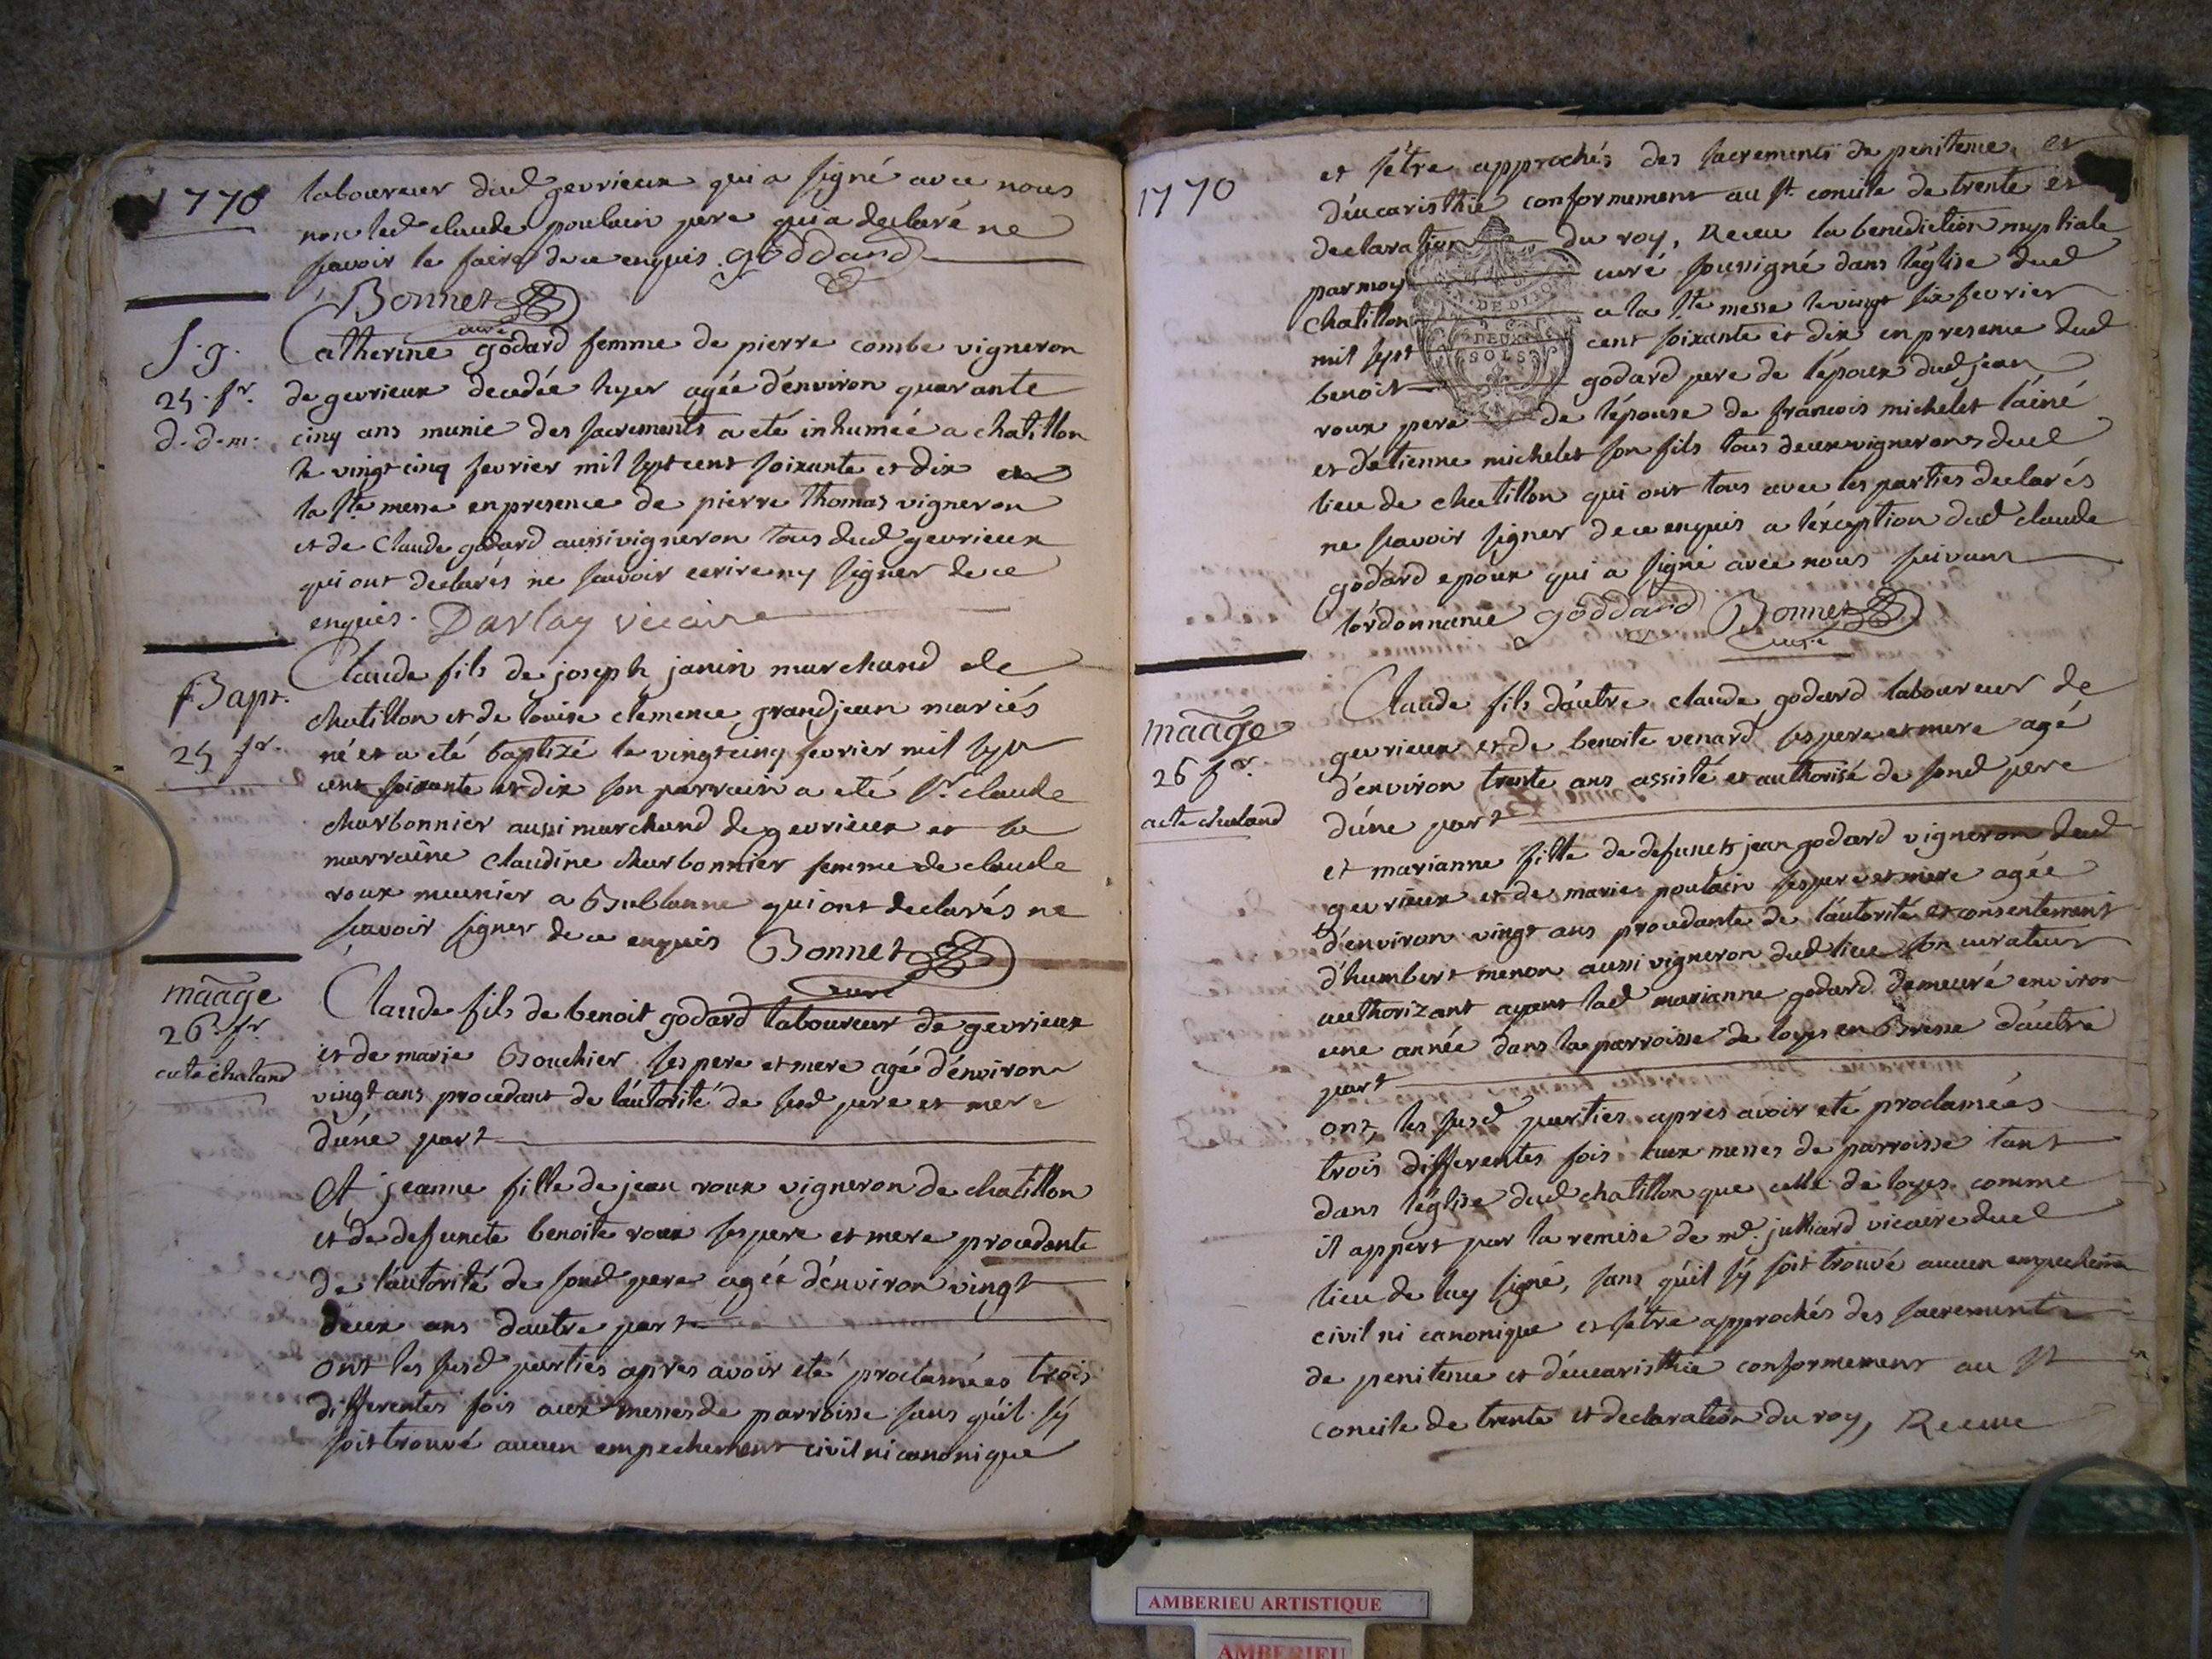 1770
laboureur dud gevrieux qui a signé avec nous
non led claude poulain pere qui a declaré ne
scavoir le faire de ce enquis. goddard
Bonnet
curé
S. g.
25. fr.
d. d. m.
Catherine godard femme de pierre combe vigneron
de gevrieux decedée hyer agée d'environ quarante
cinq ans munie des sacrements a eté inhumée a chatillon
le vingt cinq fevrier mil sept cent soixante et dix
la ste messe en presence de pierre thomas vigneron
et de Claude godard aussi vigneron tous dud gevrieux
qui ont declarés ne scavoir ecrire ny signer de ce
enquis. Darlay vicaire
Bapt.
25 fr.
Claude fils de joseph janin marchand de
chatillon et de louise clemence grandjean mariés
né et a eté baptizé le vingt cinq fevrier mil sept
cent soixante et dix son parrain a eté sr. claude
charbonnier aussi marchand de gevrieux et la
marraine Claudine charbonnier femme de claude
roux meunier a Bublanne qui ont declarés ne
scavoir signer de ce enquis Bonnet
curé
maage
26. fr.
acte chaland
Claude fils de benoit godard laboureur de gevrieux
et de marie Bouchier ses pere et mere agé d'environ
vingt ans procedant de l'autorité de sesd pere et mere
d'une part
Et jeanne fille de jean roux vigneron de chatillon
et de defuncte benoite roux ses pere et mere procedante
de l'autorité de sond pere agée d'environ vingt
deux ans d'autre part
ont les susd parties apres avoir eté proclamées trois
differentes fois aux messes de parroisse sans qu'il s'y
soit trouvé aucun empechement civil ni canonique
1770
et s'etre approchés des sacrements de penitence et
d'eucaristhie conformement au st. concile de trente et
declaration du roy, Receu la benediction nuptiale
par moy curé soussigné dans l'église dud
Chatillon a la ste messe le vingt six fevrier
mil sept cent soixante et dix en presence dud
benoit godard pere de l'époux dud jean
roux pere de l'épouse de francois michelet l'ainé
et d'etienne michelet son fils tous deux vignerons dud
lieu de chatillon qui ont tous avec les parties declarés
ne scavoir signer de ce enquis a l'exception dud claude
godard epoux qui a signé avec nous suivant
l'ordonnance goddard Bonnet
curé
DE DIJO
DEUX
SOLS
maage
26 fr.
acte chaland
Claude fils d'autre claude godard laboureur de
gevrieux et de benoite venard ses pere et mere agé
d'environ trente ans assisté et authorisé de sond pere
d'une part
et marianne fille de defuncts jean godard vigneron dud
gevrieux et de marie poulain ses pere et mere agée
d'environ vingt ans procedante de l'autorité et consentement
d'humbert menon aussi vigneron dud lieu son curateur
authorizant ayant lad marianne godard demeuré environ
une année dans la parroisse de loyes en Bresse d'autre
part
ont, les susd parties apres avoir eté proclamées
trois differentes fois aux messes de parroisse tant
dans l'église dud chatillon que celle de loyes comme
il appert par la remise de md. julliard vicaire dud
lieu de luy signé, sans qu'il s'y soit trouvé aucun empechem
civil ni canonique et s'etre approchés des sacrements
de penitence et d'eucaristhie conformement au st
concile de trente et declaration du roy, Receue
AMBERIEU ARTISTIQUE
AMBERIEU